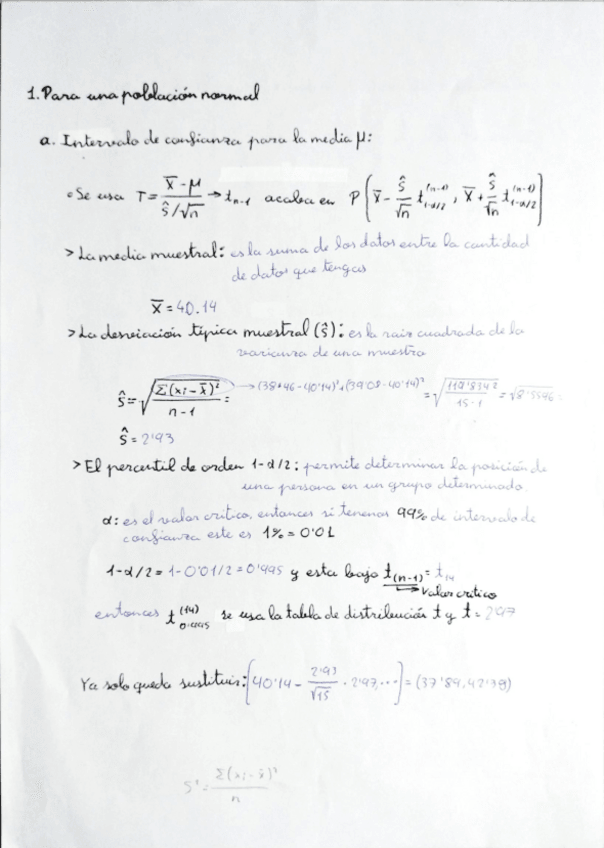 1. Para una población normal
a. Intervalo de confianza para la media μ:
• Se usa T = (X̄ - μ) / (ŝ/√n) → t n-1 acaba en P( X̄ - ŝ/√n t (n-1) 1-α/2 , X̄ + ŝ/√n t (n-1) 1-α/2 )
> La media muestral: es la suma de los datos entre la cantidad
de datos que tengas
X̄ = 40.14
> La desviación típica muestral (ŝ): es la raiz cuadrada de la
varianza de una muestra
ŝ = √( Σ(xi - x̄)² / (n-1) ) = → (38'46 - 40'14)² + (39'08 - 40'14)² = √( / 15-1 ) = √8'5596
ŝ = 2'93
> El percentil de orden 1-α/2: permite determinar la posición de
una persona en un grupo determinado
α: es el valor critico, entonces si tenemos 99% de intervalo de
confianza este es 1% = 0'01
1-α/2 = 1-0'01/2 = 0'995 y esta bajo t(n-1) = t14
→ valor critico
entonces t (14) 0.995 se usa la tabla de distribución t y t = 2'97
Ya solo queda sustituir: [40'14 - 2'93/√15 · 2'97, ...] = (37'89, 42'39)
S² = Σ(xi - x̄)² / n